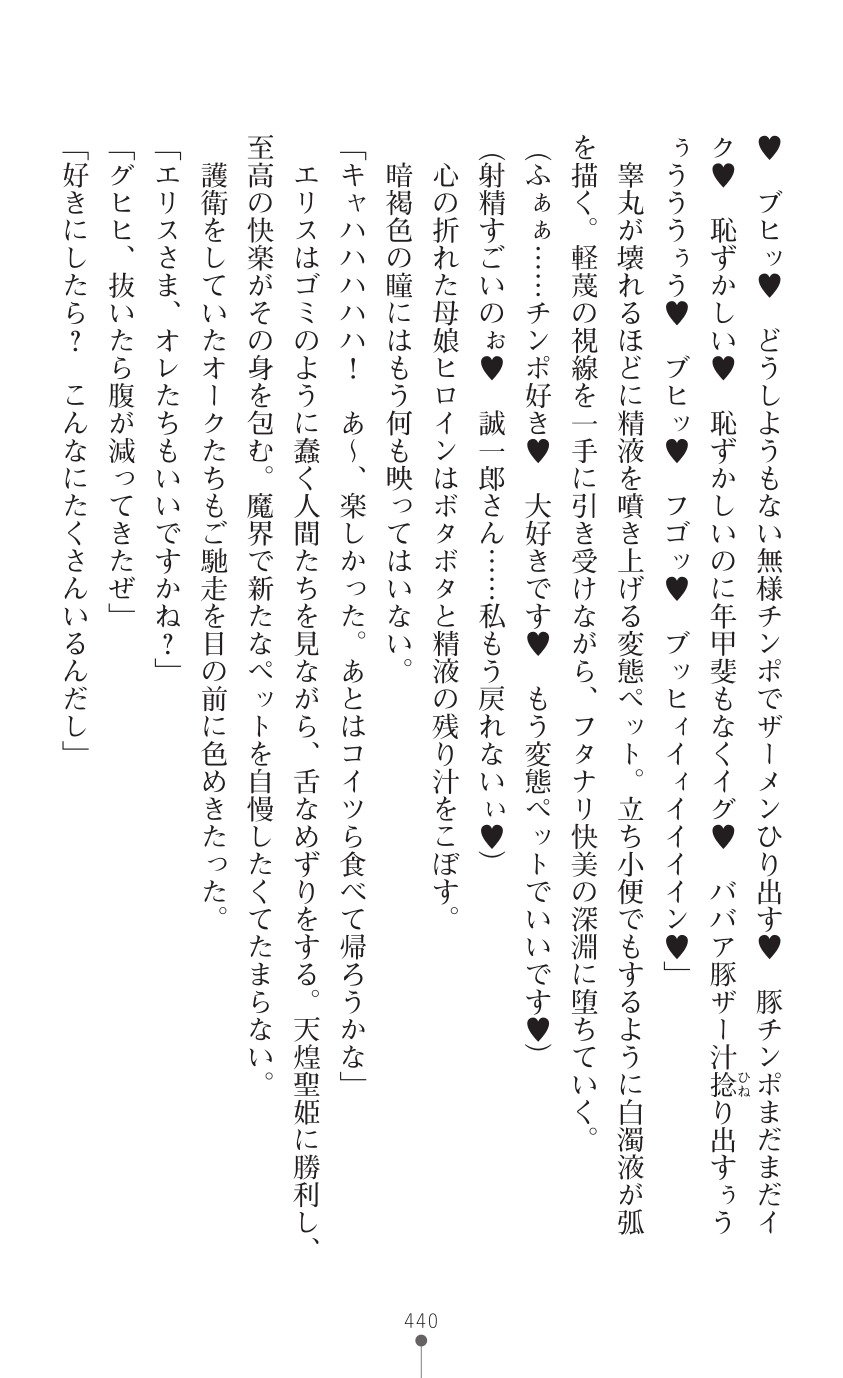 ♥　ブヒッ♥　どうしようもない無様チンポでザーメンひり出す♥　豚チンポまだまだイ
ク♥　恥ずかしい♥　恥ずかしいのに年甲斐もなくイグ♥　ババア豚ザー汁捻り出すぅう
ぅうううぅう♥　ブヒッ♥　フゴッ♥　ブッヒィイィイイイイン♥」
　睾丸が壊れるほどに精液を噴き上げる変態ペット。立ち小便でもするように白濁液が弧
を描く。軽蔑の視線を一手に引き受けながら、フタナリ快美の深淵に堕ちていく。
（ふぁぁ……チンポ好き♥　大好きです♥　もう変態ペットでいいです♥）
（射精すごいのぉ♥　誠一郎さん……私もう戻れないぃ♥）
　心の折れた母娘ヒロインはボタボタと精液の残り汁をこぼす。
　暗褐色の瞳にはもう何も映ってはいない。
「キャハハハハハ！　あ～、楽しかった。あとはコイツら食べて帰ろうかな」
　エリスはゴミのように蠢く人間たちを見ながら、舌なめずりをする。天煌聖姫に勝利し、
至高の快楽がその身を包む。魔界で新たなペットを自慢したくてたまらない。
　護衛をしていたオークたちもご馳走を目の前に色めきたった。
「エリスさま、オレたちもいいですかね？」
「グヒヒ、抜いたら腹が減ってきたぜ」
「好きにしたら？　こんなにたくさんいるんだし」
ひね
440